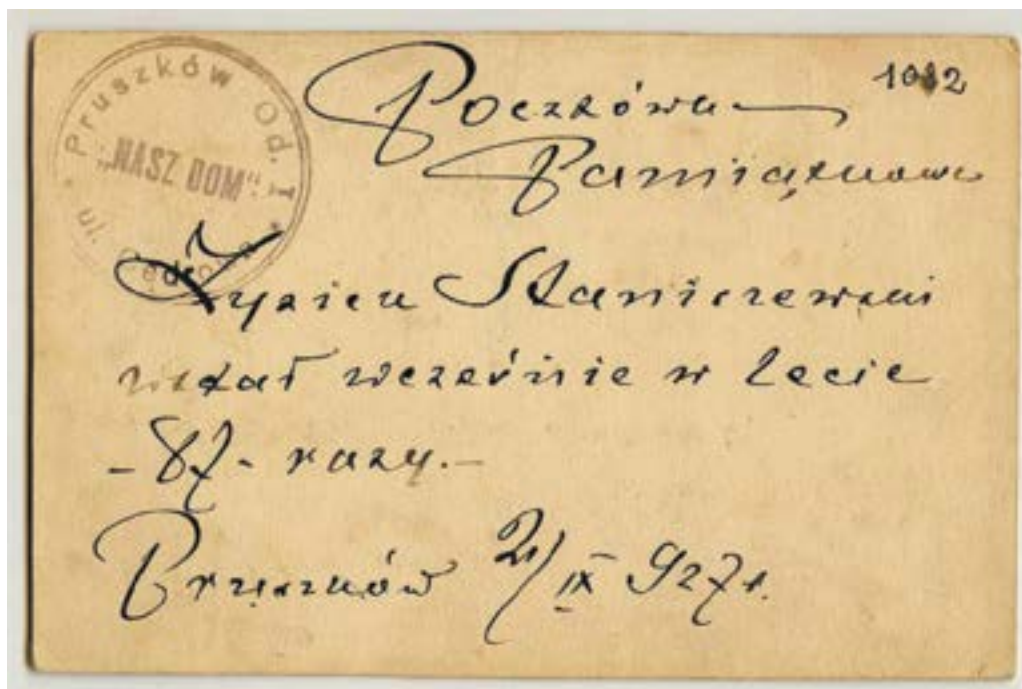 Pruszków Od. I
"NASZ DOM"
1082
Pocztówka
Pamiątkowa
Staniszewski
wstał wcześnie w lecie
- 87 - razy. -
Pruszków 21/IX 927 r.